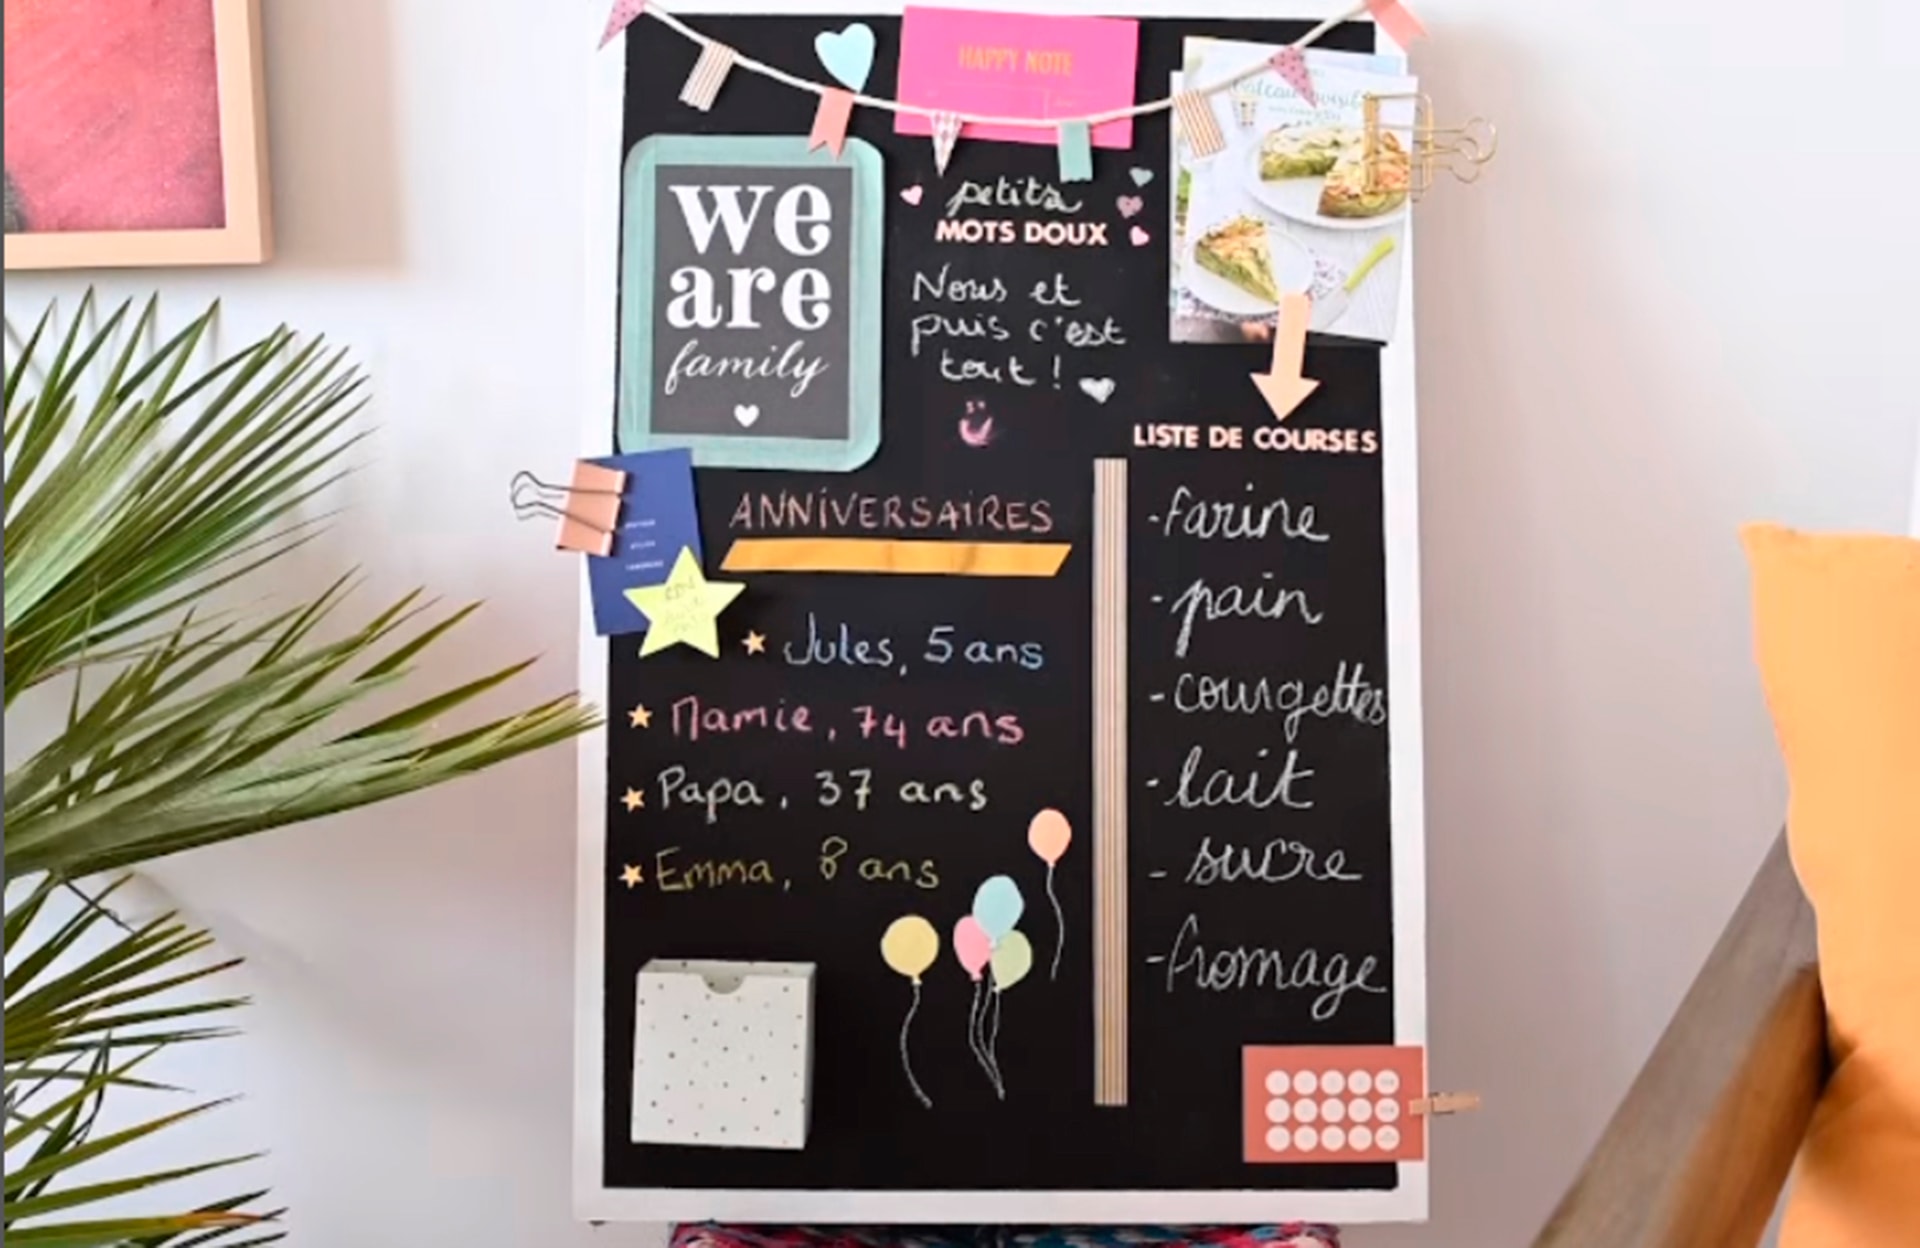 HAPPY NOTE
we
are
family
petits
MOTS DOUX
Nous et
puis c'est
tout !
LISTE DE COURSES
-farine
-pain
-courgettes
-lait
- sucre
-fromage
ANNIVERSAIRES
Jules, 5 ans
Mamie, 74 ans
Papa, 37 ans
Emma, 8 ans